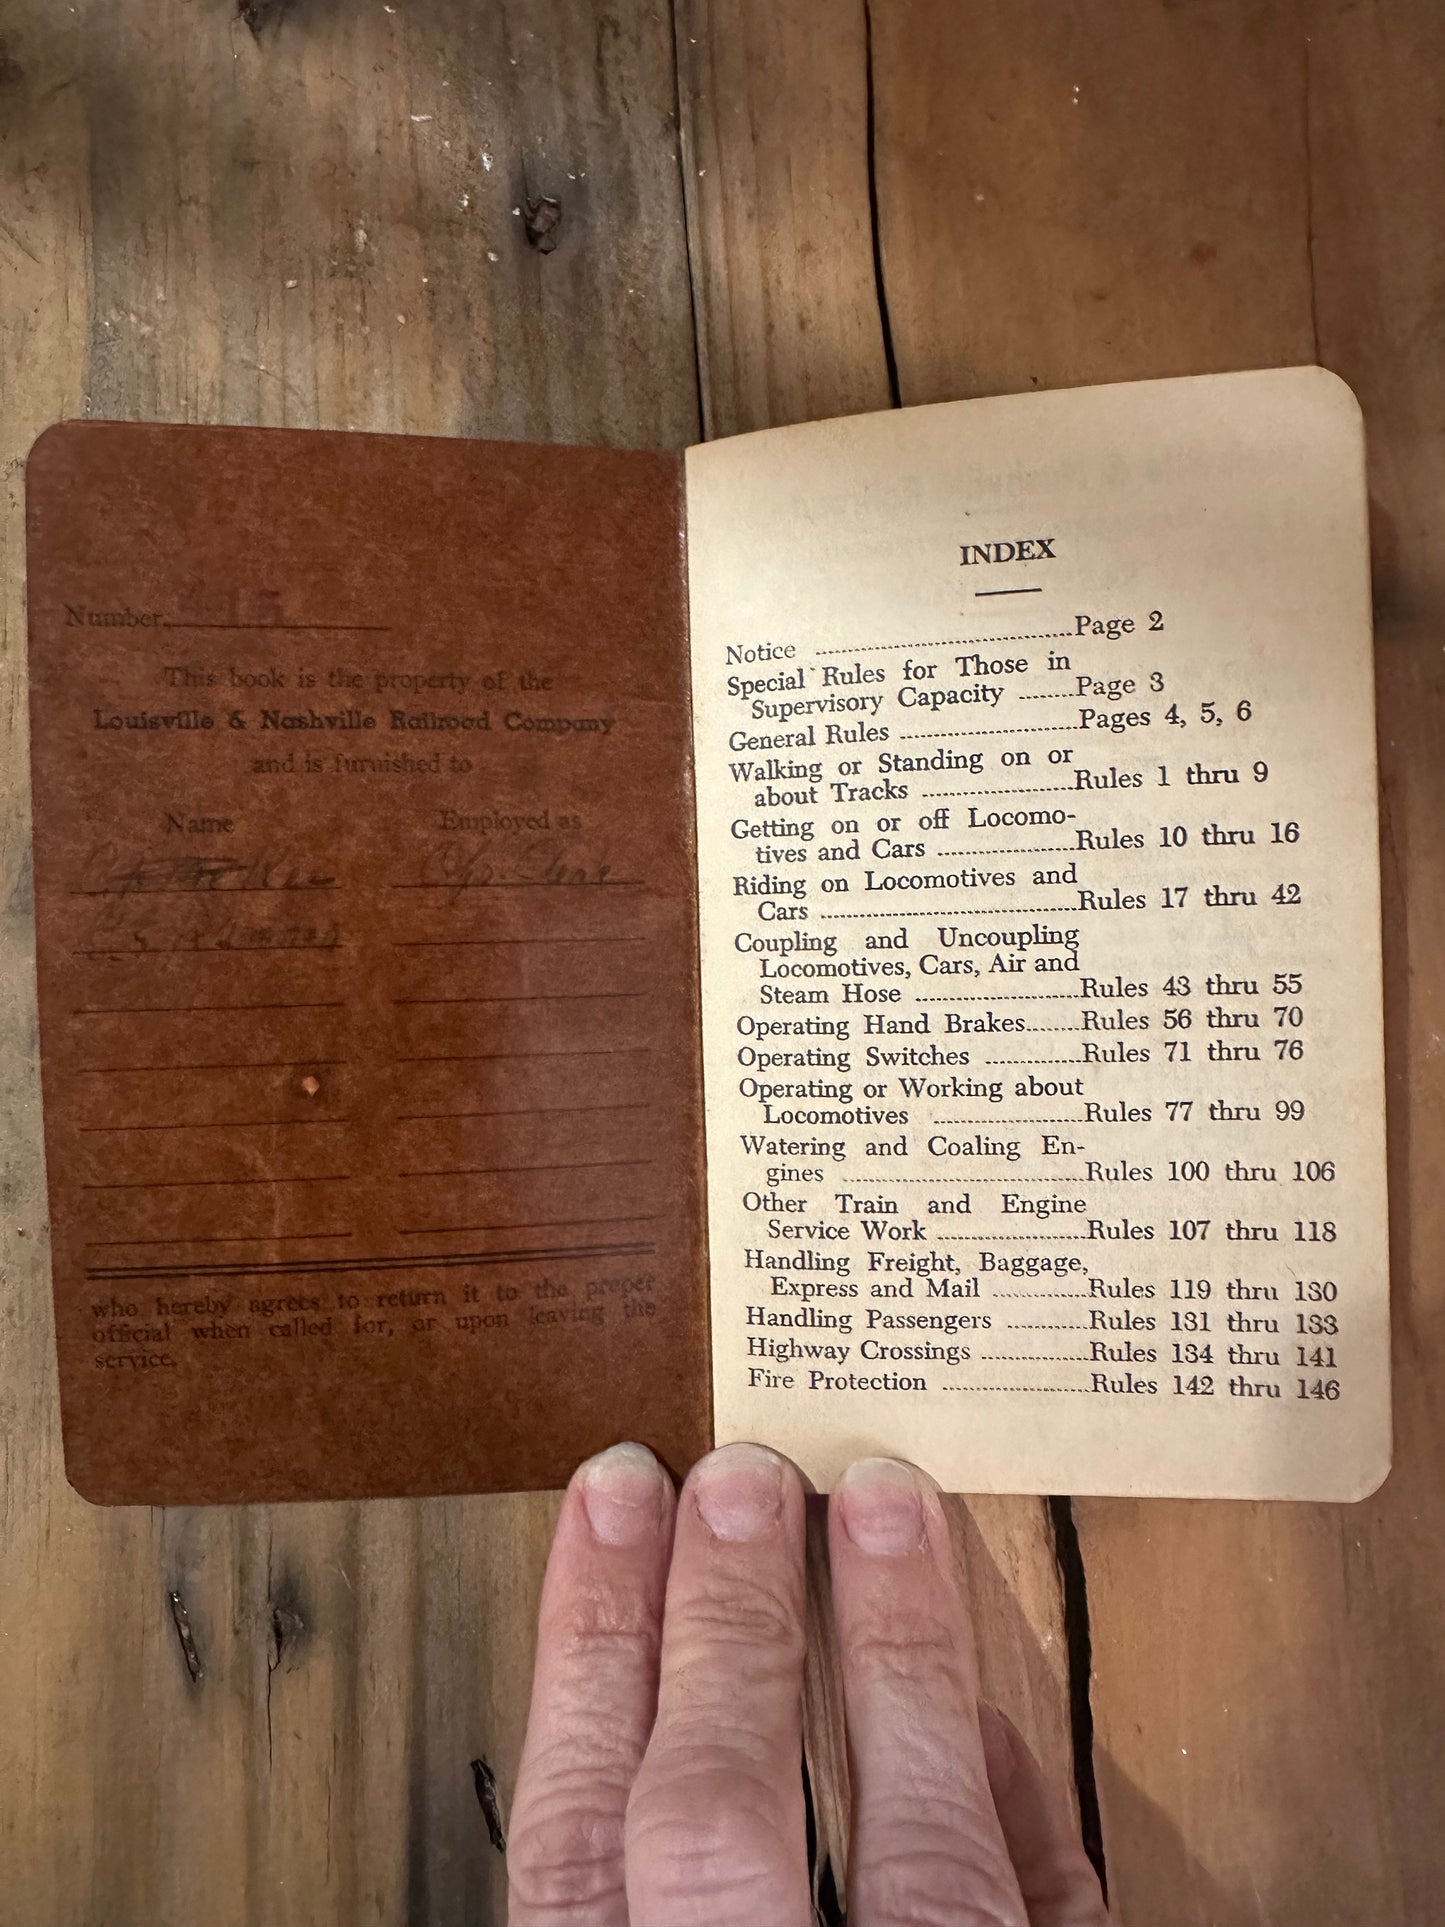 Number
This book is the property of the
Louisville & Nashville Railroad Company
and is furnished to
Name Employed as
who hereby agrees to return it to the proper
official when called for, or upon leaving the
service.
INDEX
Notice ........................................Page 2
Special Rules for Those in
Supervisory Capacity ........Page 3
General Rules ............................Pages 4, 5, 6
Walking or Standing on or
about Tracks ........................Rules 1 thru 9
Getting on or off Locomo-
tives and Cars ......................Rules 10 thru 16
Riding on Locomotives and
Cars ........................................Rules 17 thru 42
Coupling and Uncoupling
Locomotives, Cars, Air and
Steam Hose ..........................Rules 43 thru 55
Operating Hand Brakes........Rules 56 thru 70
Operating Switches ...............Rules 71 thru 76
Operating or Working about
Locomotives ........................Rules 77 thru 99
Watering and Coaling En-
gines ......................................Rules 100 thru 106
Other Train and Engine
Service Work ........................Rules 107 thru 118
Handling Freight, Baggage,
Express and Mail ...............Rules 119 thru 130
Handling Passengers .............Rules 131 thru 133
Highway Crossings .................Rules 134 thru 141
Fire Protection .......................Rules 142 thru 146